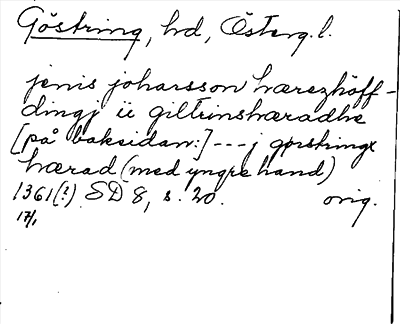 Göstring, hd, Österg.l.
jenis joharsson hærezhöff-
dingj ii giltrinshæradhe
[på baksidan:] --- j gøstringx
hærad (med yngre hand)
1361(?) SD 8, s. 20. orig.
17/1